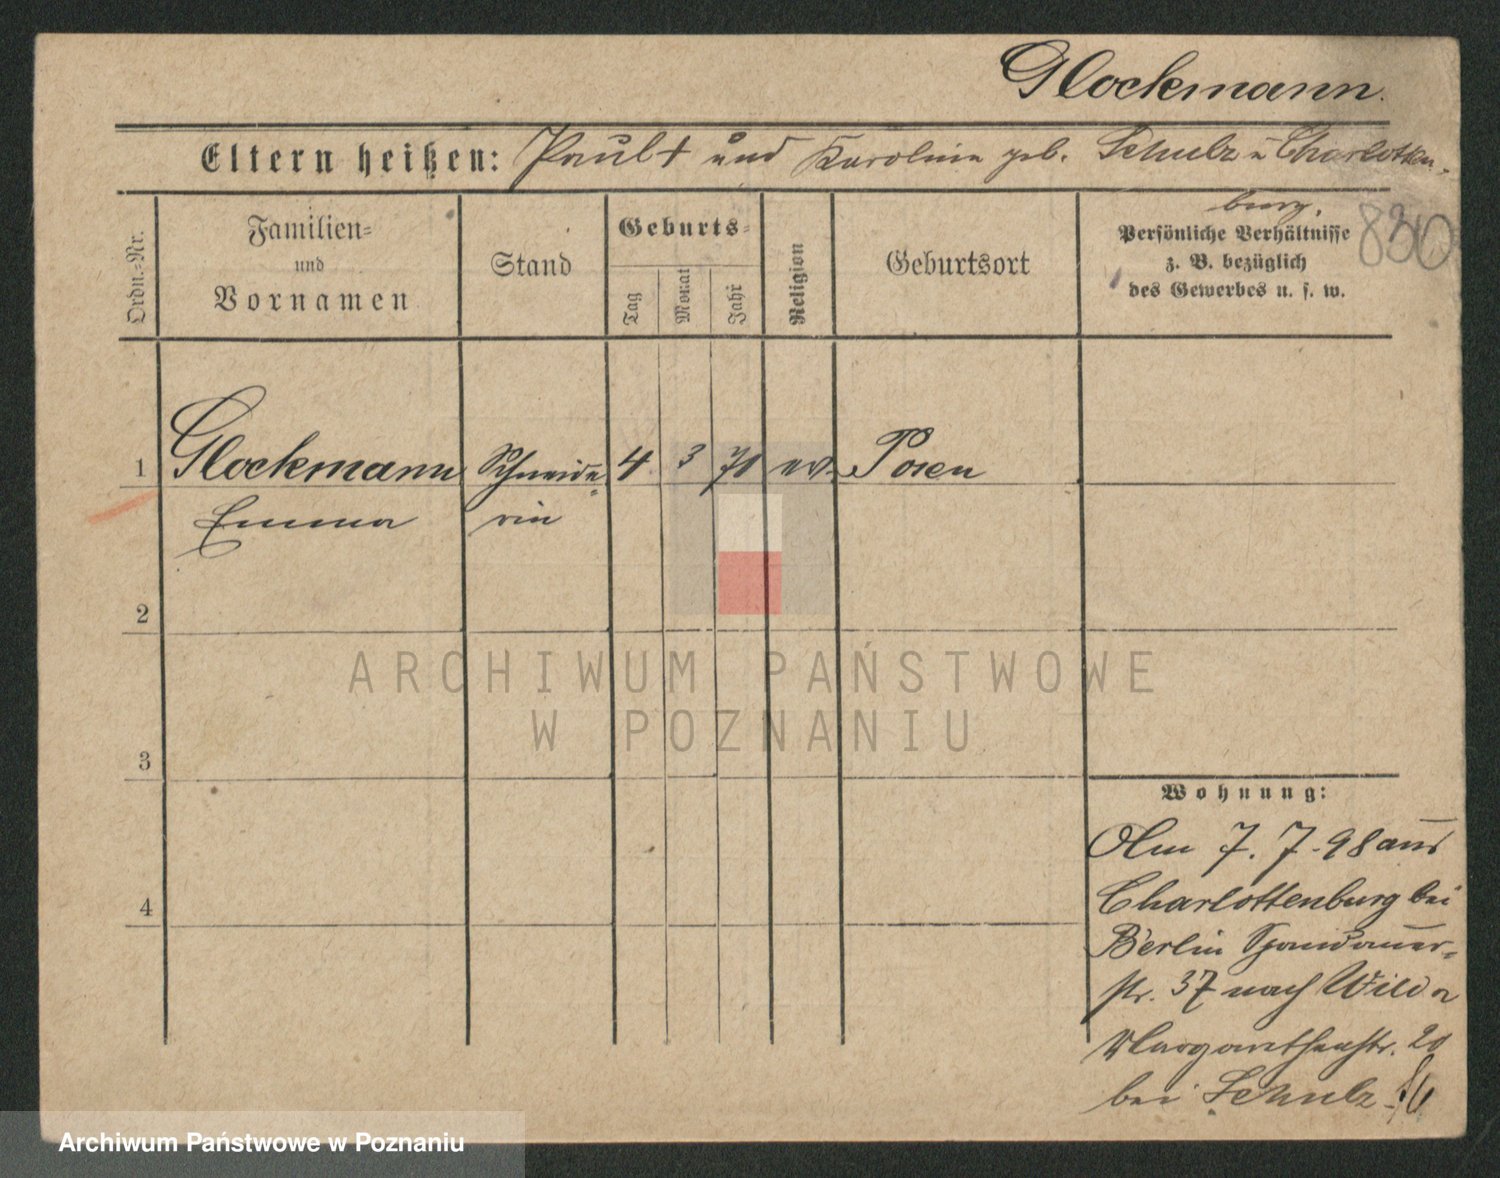 Glockmann.
Eltern heißen: Paul + und Karoline geb. Schulz u Charlotten-
burg.
830
Ordn.-Nr.
Familien-
und
Vornamen
Stand
Geburts-
Tag
Monat
Jahr
Religion
Geburtsort
Persönliche Verhältnisse
z. B. bezüglich
des Gewerbes u. s. w.
1 Glockmann Schneide- 4 3 70 ev. Posen
Emma rin
2
ARCHIWUM PAŃSTWOWE
W POZNANIU
3
Wohnung:
Am 7. 7. 98 aus
Charlottenburg bei
4
Berlin Spandauer-
str. 37 nach Wilda
Margarethenstr. 20
bei Schulz.
Archiwum Państwowe w Poznaniu